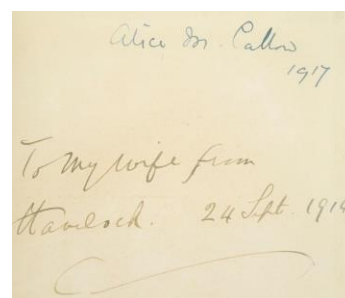 Alice M. Callow
1917
To My Wife from
Havelock. 24 Sept. 1914